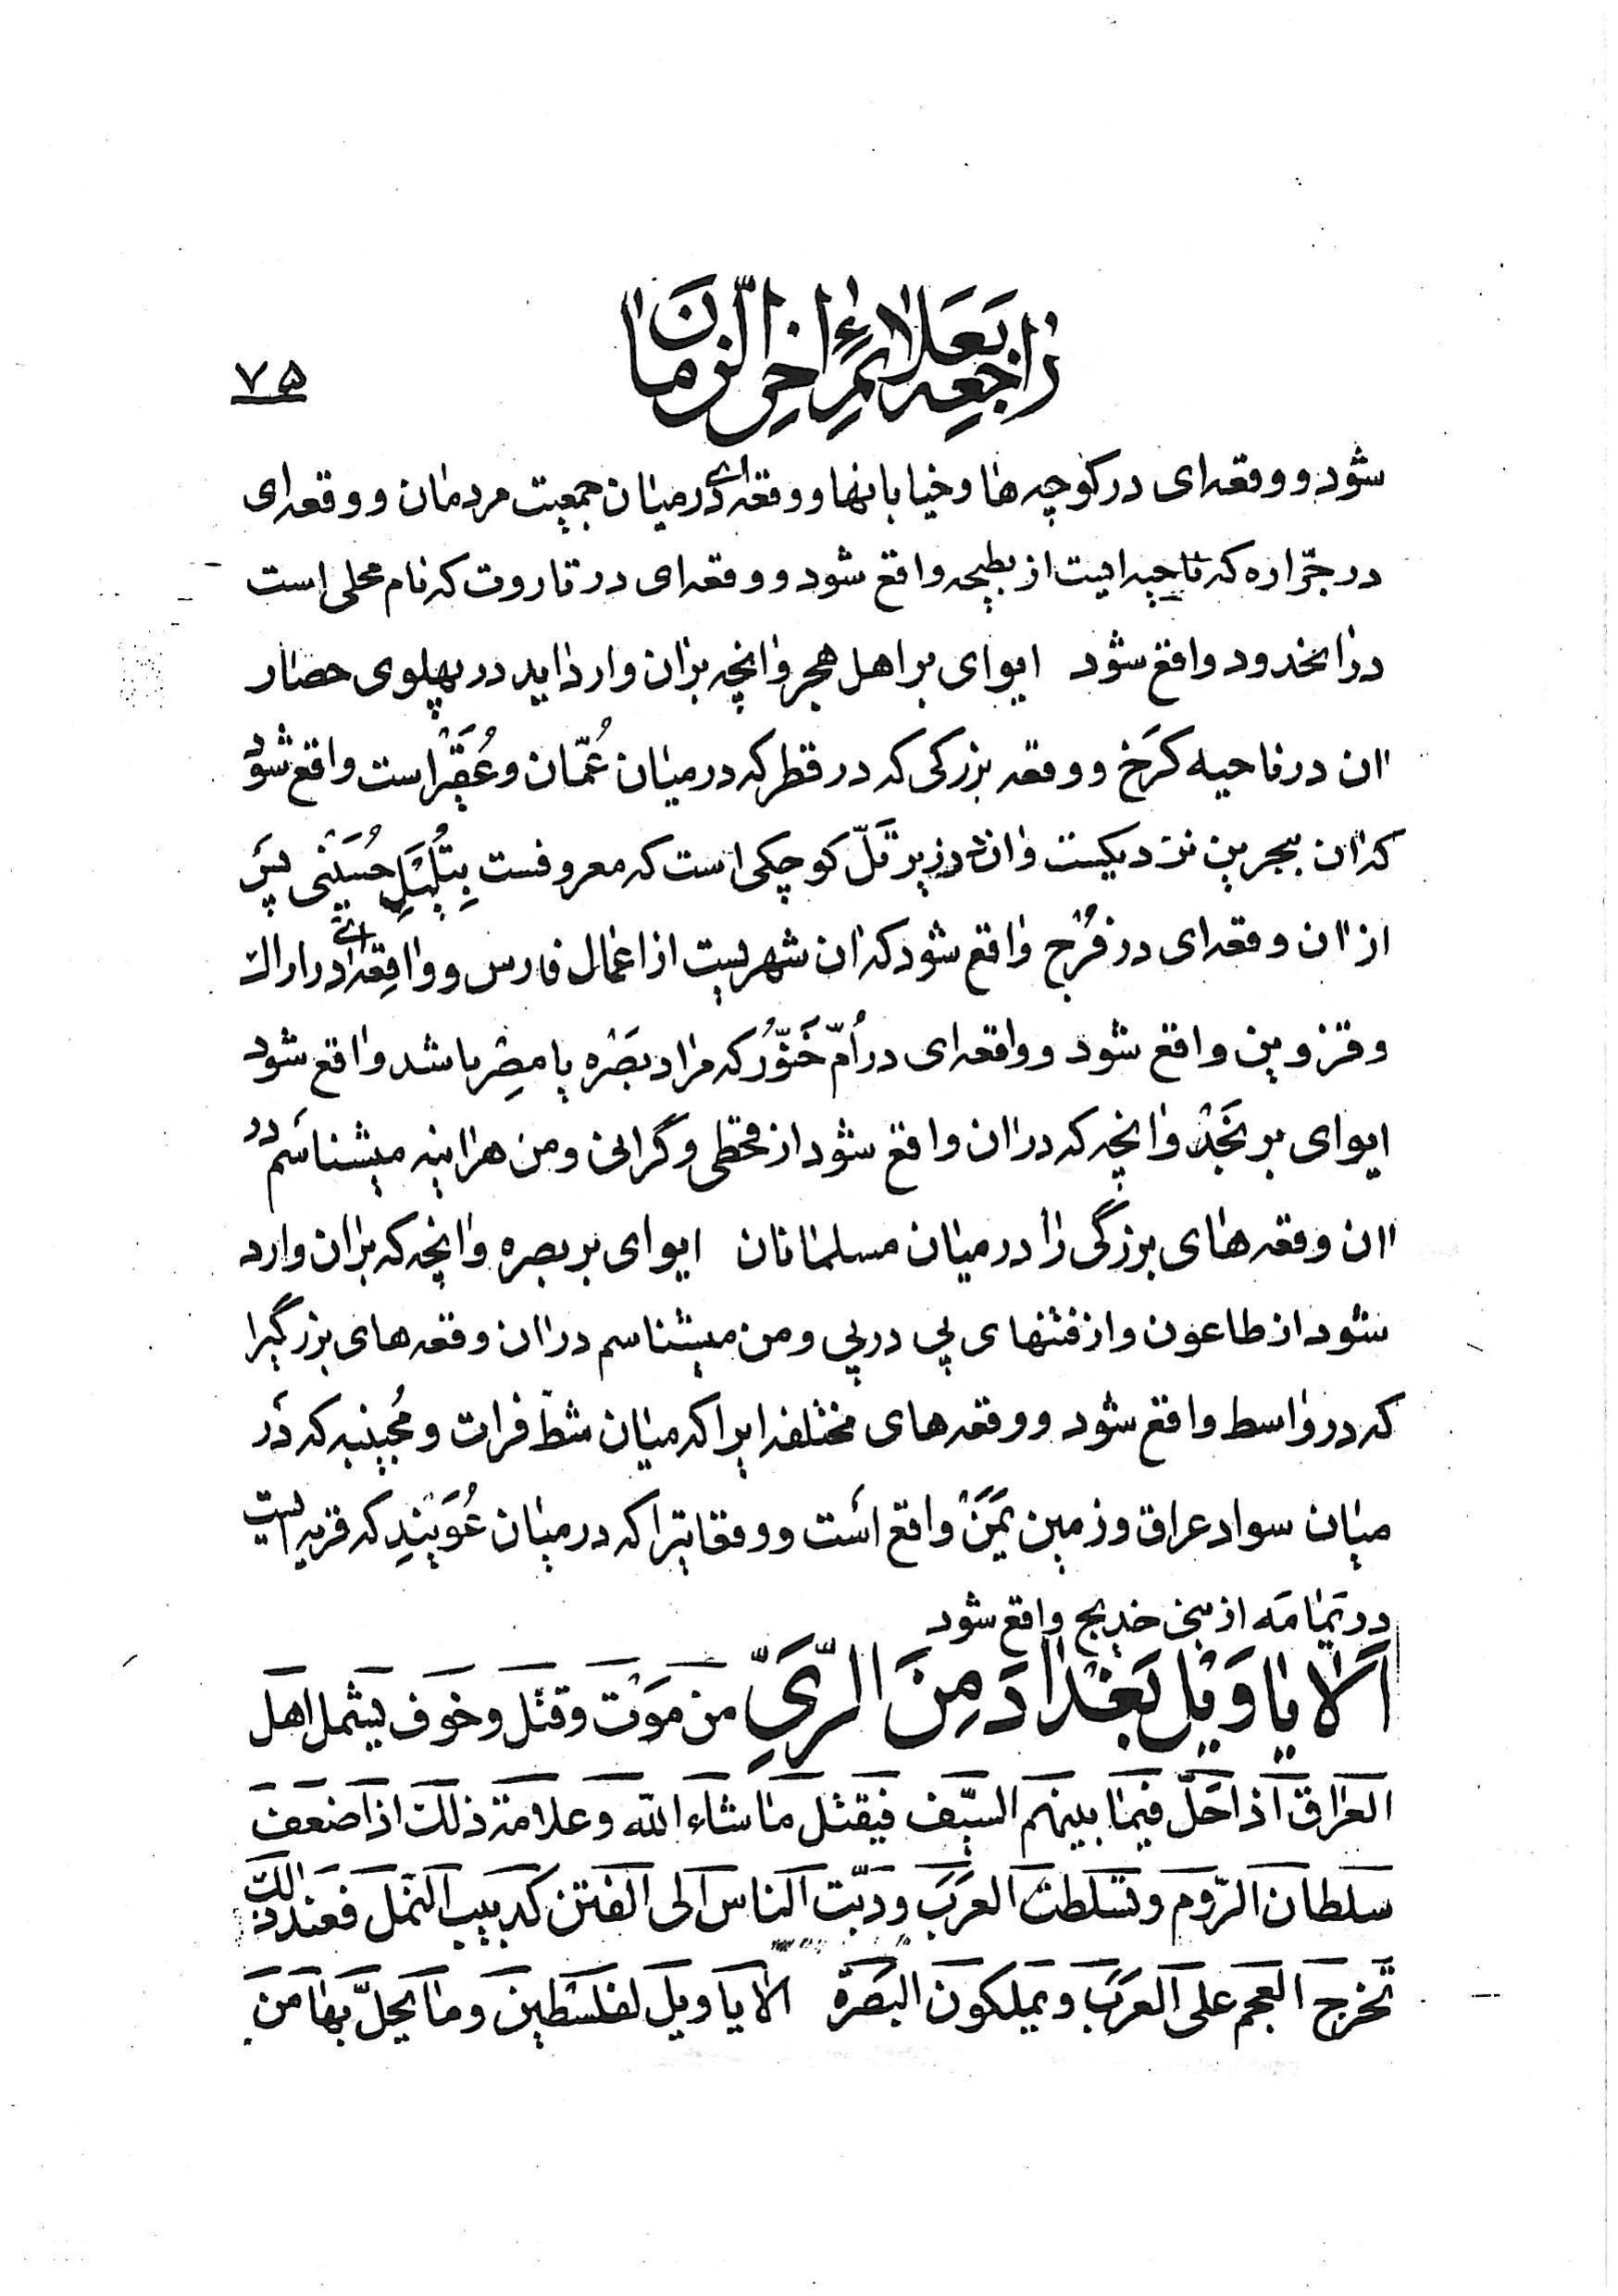 راجعه بعلائم اخر الزمان
۷۵
شود و وقعه‌ای در کوچه‌ها و خیابانها و وقعه‌ای در میان جمعیت مردمان و وقعه‌ای
در جرّاره که ناحیه‌ایست از بطیحه واقع شود و وقعه‌ای در تاروت که نام محلی است
در انحدود واقع شود ایوای بر اهل هجر و انچه بران وارد اید در پهلوی حصار
ان در ناحیه کَرخ و وقعه بزرکی که در قطر که در میان عُمّان و عُقَیْر است واقع شود
که ان ببحرین نزدیکست و ان در زیر تَلّ کوچکی است که معروفست بِتُلَیْلِ حُسَیْنی پس
از ان وقعه‌ای در فُرْج واقع شود که ان شهریست از اعمال فارس و واقعه‌ای در اراك
و قزوین واقع شود و واقعه‌ای در اُمّ خَنّوُر که مراد بصْره یا مِصْر باشد واقع شود
ایوای بر نَجْد و انچه که در ان واقع شود از قحطی و گرانی و من هراینه میشناسم در
ان وقعه‌های بزرگی را در میان مسلمانان ایوای بر بصره و انچه که بران وارد
شود از طاعون و از فتنهای پی در پی و من میشناسم در ان وقعه‌های بزرگیرا
که در واسط واقع شود و وقعه‌های مختلفه ایرا که میان شطّ فرات و مُجَینبه که در
میان سواد عراق و زمین یَمَنْ واقع است و وقعاتیرا که در میان عُوَیْنِد که قریه ایست
در یَمامَه از بنی خدیج واقع شود
اَلا یا وَیْلَ بَغْدادَ مِنَ الرَّیِّ من مَوْت و قتل و خَوف یشمل اهل
العراق اذا حَلّ فیما بینهم السیّف فیقتل ما شاء الله و علامة ذلك اذا ضعف
سلطان الرّوم و تسلّطت العرَب و دبّت الناس الی الفتن کدبیب النمل فعند ذلك
تخرج العجم علی العرَب و یملکون البصَرة الا یا ویل لفلسطین و ما یحلّ بها من